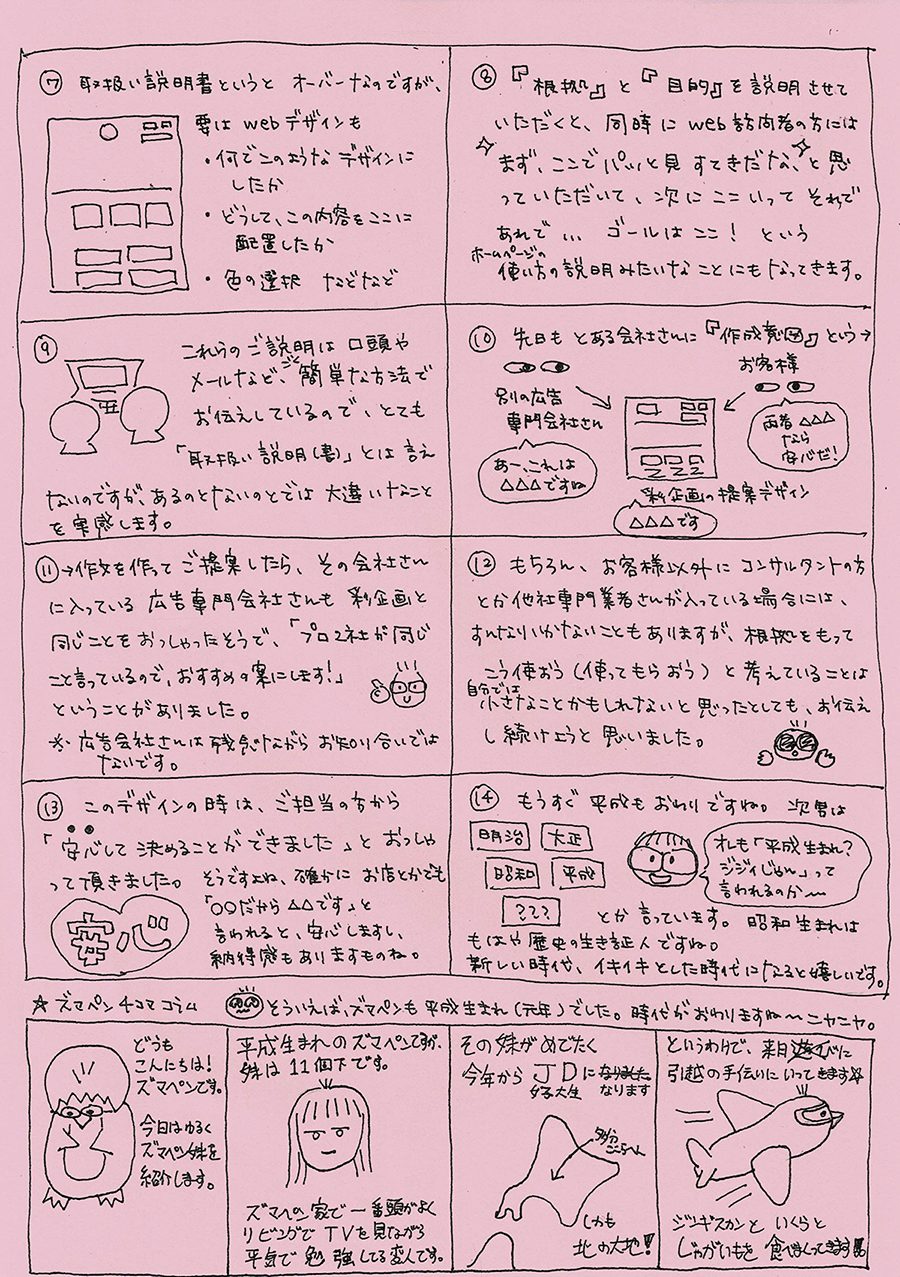 ⑦ 取扱い説明書というと オーバーなのですが、
要は webデザインも
・何でこのような デザインに
したか
・どうして、この内容をここに
配置したか
・色の選択 などなど
⑧ 『根拠』と『目的』を説明させて
いただくと、同時に web訪問者の方には
まず、ここでパッと見 すてきだな、と思
っていただいて、次に ここいって それで
あれで … ゴールはここ! という
ホームページの
使い方の説明みたいな ことにもなってきます。
⑨ これらの ご説明は 口頭や
メールなど、ごく簡単な方法で
お伝えしているので、とても
「取扱い説明(書)」とは 言え
ないのですが、あるのとないのとでは 大違いなこと
を実感します。
⑩ 先日も とある会社さんに『作成意図』という→
お客様
別の広告
専門会社さん
あー、これは
△△△ですね
両者 △△△
なら
安心だ!
彩企画の提案デザイン
△△△です
⑪→作文を作って ご提案したら、その会社さん
に入っている 広告専門会社さんも 彩企画と
同じことを おっしゃったそうで、「プロ2社が同じ
こと言っているので、おすすめの案にします!」
ということがありました。
※ 広告会社さんは 残念ながら お知り合いでは
ないです。
⑫ もちろん、お客様以外に コンサルタントの方
とか他社専門業者さんが入っている場合には、
すんなりいかないこともありますが、根拠をもって
こう使おう(使ってもらおう)と 考えていることは
自分では
小さなことかもしれないと 思ったとしても、お伝え
し続けようと 思いました。
⑬ このデザインの時は、ご担当の方から
「安心して 決めることができました」と おっしゃ
って頂きました。 そうですよね、確かに お店とかでも
「○○だから△△です」と
言われると、安心しますし、
納得感もありますものね。
安心
⑭ もうすぐ 平成も おわりですね。 次男は
明治 大正
昭和 平成
???
オレも「平成生まれ?
ジジィじゃん」って
言われるのか〜
とか 言っています。 昭和 生まれは
もはや 歴史の生き証人ですね。
新しい時代、イキイキとした時代になると嬉しいです。
☆ズマペン4コマ コラム
そういえば、ズマペンも 平成生まれ(元年)でした。時代がおわりますね〜ニヤニヤ。
どうも
こんにちは!
ズマペンです。
今日はゆるく
ズマペン妹を
紹介します。
平成生まれの ズマペンですが、
妹は 11個下です。
ズマペン家で 一番頭がよく
リビングで TVを見ながら
平気で 勉強してる変人です。
その妹がめでたく
今年から JDになりました
女子大生 なります
多分
ここらへん
しかも
北の大地!!
というわけで、来月 遊びに
引越の手伝いにいってきます☆
ジンギスカンと いくらと
じゃがいもを 食べまくってきます!!